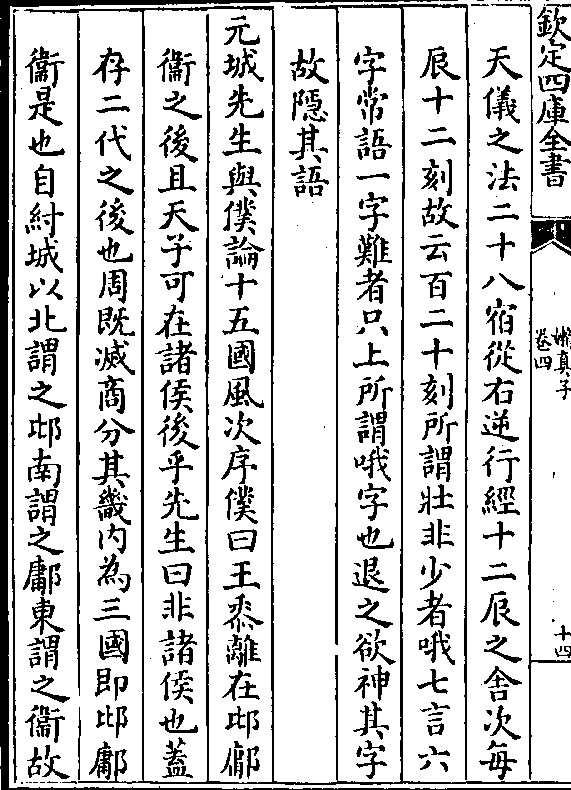 欽定四庫全書
嬾真子
卷四
十四
天儀之法二十八宿從右逆行經十二辰之舍次每
辰十二刻故云百二十刻所謂壯非少者哦七言六
字常語一字難者只上所謂哦字也退之欲神其字
故隱其語
元城先生與僕論十五國風次序僕曰王黍離在邶鄘
衞之後且天子可在諸侯後乎先生曰非諸侯也蓋
存二代之後也周既滅商分其畿内為三國即邶鄘
衞是也自紂城以北謂之邶南謂之鄘東謂之衞故